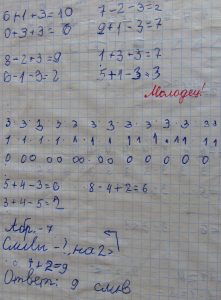 6+1+3=10 7-2-3=2
0+3+3=6 9+1-3=7
8-2+3=9 1+3+3=7
6-1-3=2 5+1-3=3
Молодец!
3 3 3 3 3 3 3 3 3 3 33
1 1 1 1 1 1 1 1 1 11 11
0 00 00 0 0 0 0 0 0 0
5+4-3=6 8-4+2=6
3+4-5=2
Абр. - 7
Сливы - ?, на 2>
7+2=9
Ответ: 9 слив